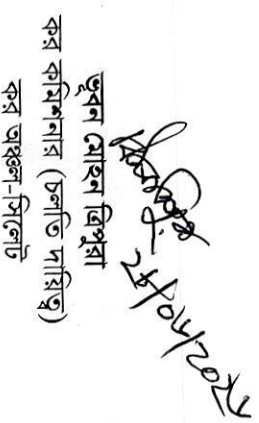 ভুবন মোহন ত্রিপুরা
কর কমিশনার (চলতি দায়িত্ব)
কর অঞ্চল-সিলেট